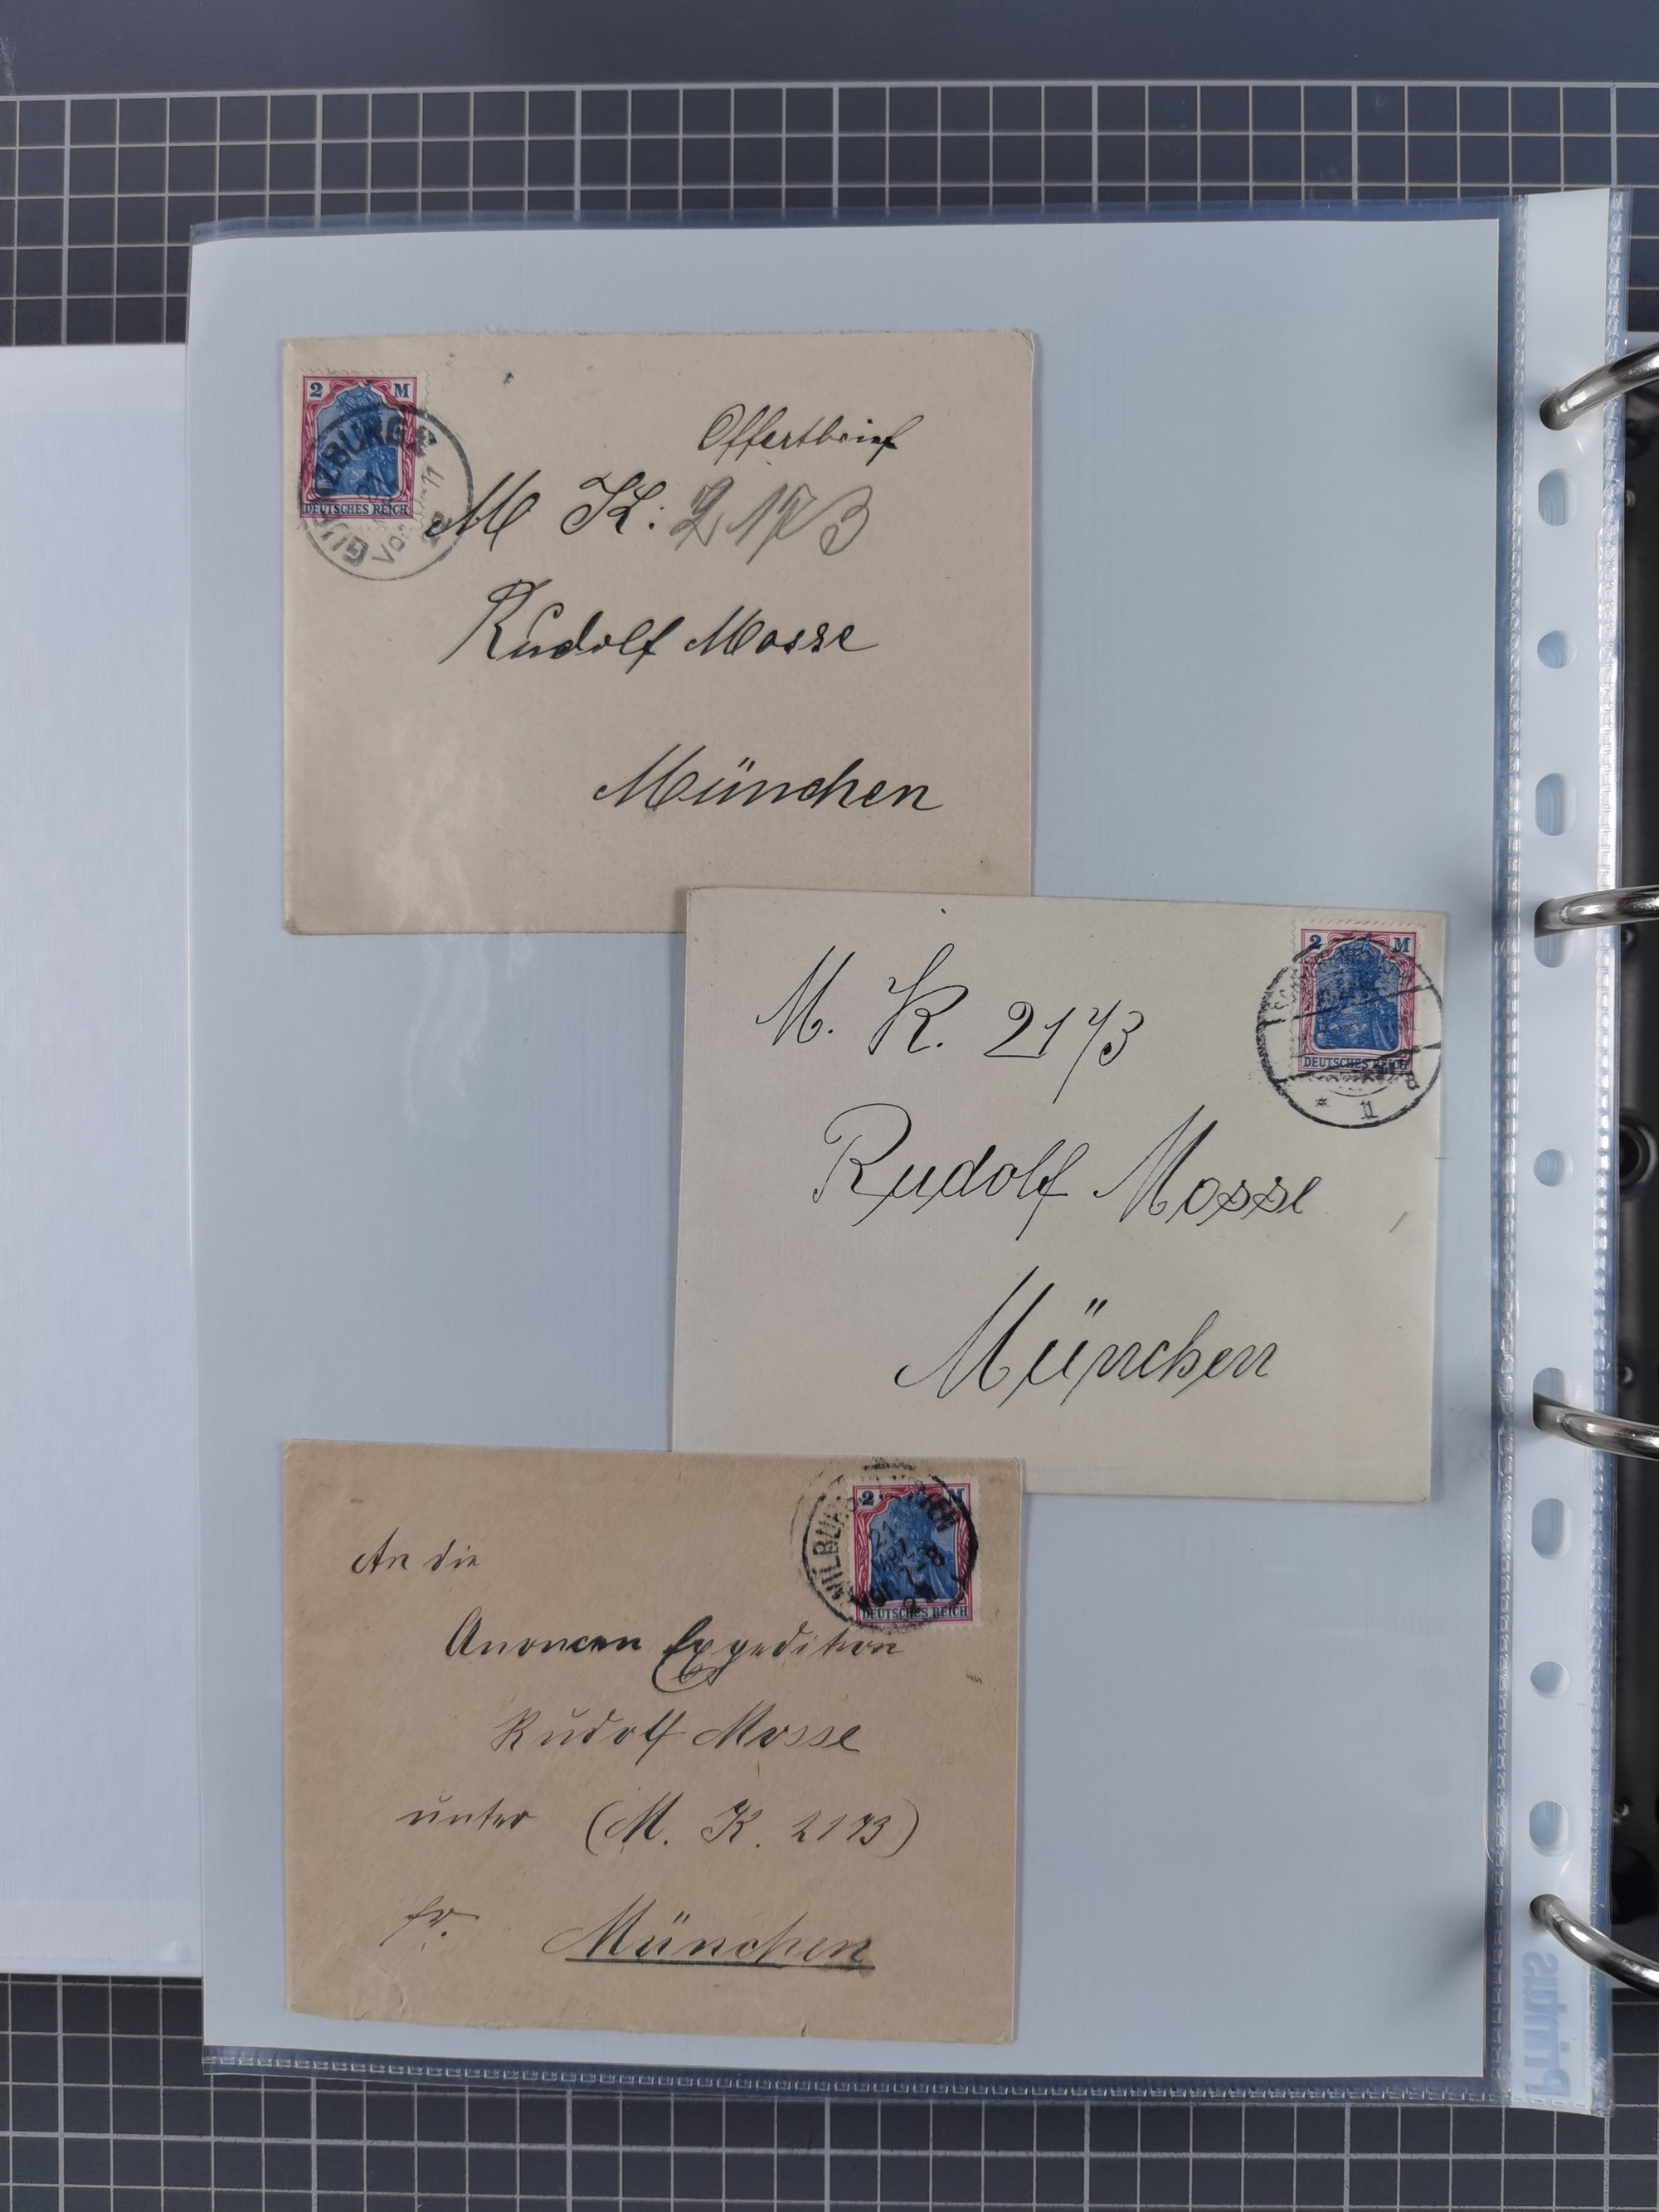 2 M
DEUTSCHES REICH
Offertbrief
M K: 2173
Rudolf Mosse
München
2 M
DEUTSCHES REICH
M. K. 2173
Rudolf Mosse
München
2 M
DEUTSCHES REICH
An die
Anoncen Expedition
Rudolf Mosse
unter (M. K. 2173)
fr. München
Printus